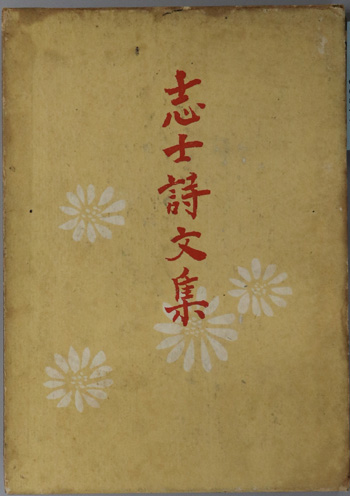 志士詩文集